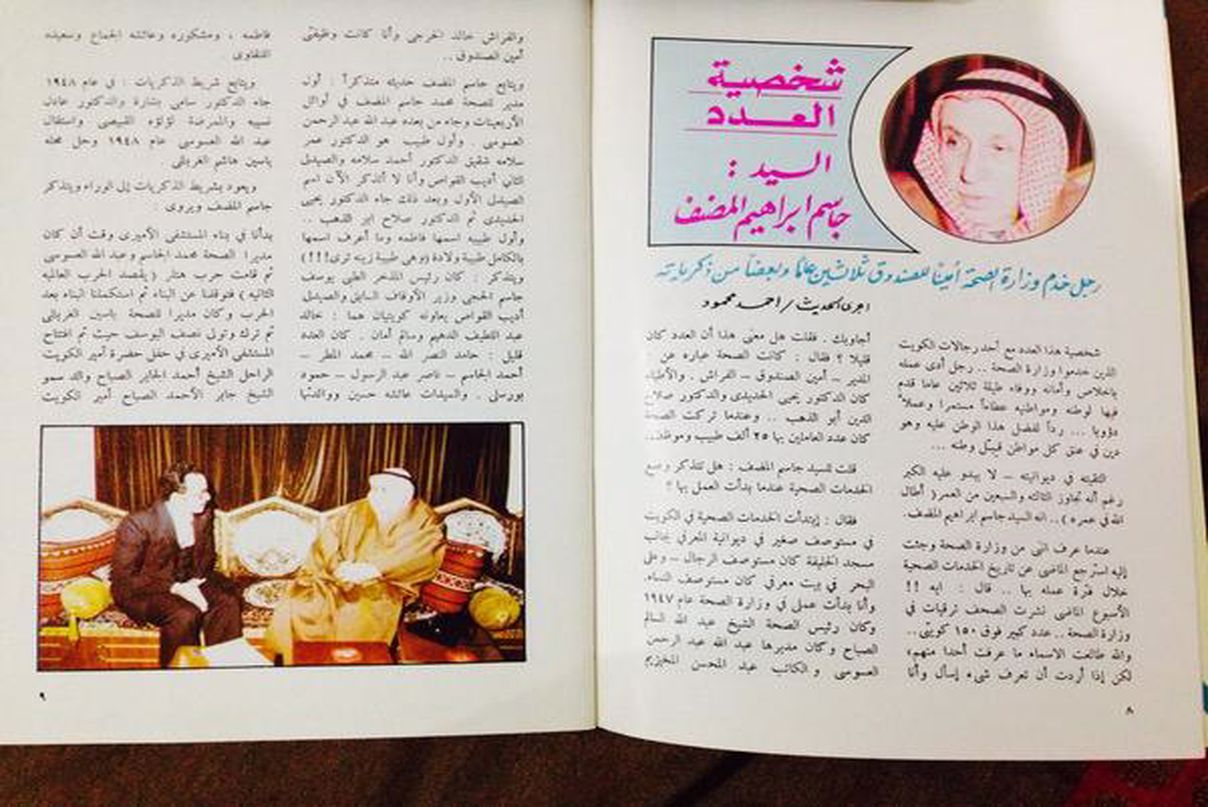 شخصية
العدد
السيد :
جاسم ابراهيم المضف
رجل خدم وزارة الصحة أميناً للصندوق ثلاثين عامًا وبعضاً من ذكرياته
اجرى الحديث / احمد محمود
شخصية هذا العدد مع أحد رجالات الكويت
الذين خدموا وزارة الصحة .. رجل أدى عمله
باخلاص وأمانه ووفاء طيلة ثلاثين عاما قدم
فيها لوطنه ومواطنيه عطاءاً مستمرا وعملاً
دؤوبا ... رداً لفضل هذا الوطن عليه وهو
دين في عنق كل مواطن قبل وطنه ...
التقيته في ديوانيته – لا يبدو عليه الكبر
رغم أنه تجاوز الثالثه والسبعين من العمر ( أطال
الله في عمره ) .. انه السيد جاسم ابراهيم المضف.
عندما عرف انني من وزارة الصحة وجئت
إليه استرجع الماضى عن تاريخ الخدمات الصحية
خلال فترة عمله بها .. قال : ايه !!
الأسبوع الماضى نشرت الصحف ترقيات في
وزارة الصحة .. عدد كبير فوق ١٥٠ كويتى ..
والله طالعت الاسماء ما عرفت أحدا منهم،
لكن إذا أردت أن تعرف شىء إسأل وأنا
أجاوبك . فقلت هل معنى هذا أن العدد كان
قليلا ؟ فقال : كانت الصحة عباره عن :
المدير – أمين الصندوق – الفراش . والأطباء
كان الدكتور يحيى الحديدى والدكتور صلاح
الدين أبو الذهب .. وعندما تركت الصحة
كان عدد العاملين بها ٢٥ ألف طبيب وموظف ..
قلت للسيد جاسم المضف : هل تتذكر وضع
الخدمات الصحية عندما بدأت العمل بها ؟
فقال : إبتدأت الخدمات الصحية في الكويت
في مستوصف صغير في ديوانية المعرفي بجانب
مسجد الخليفة كان مستوصف الرجال – وعلى
البحر في بيت معرفي كان مستوصف النساء.
وأنا بدأت عملى في وزارة الصحة عام ١٩٤٧
وكان رئيس الصحة الشيخ عبد الله السالم
الصباح وكان مديرها عبد الله عبد الرحمن
العسوسى والكاتب عبد المحسن المخيزيم
٨
والفراش خالد الخرجى وأنا كانت وظيفتى
أمين الصندوق ..
ويتابع جاسم المضف حديثه متذكراً : أول
مدير للصحة محمد جاسم المضف في أوائل
الأربعينات وجاء من بعده عبد الله عبد الرحمن
العسوسى . وأول طبيب هو الدكتور عمر
سلامه شقيق الدكتور أحمد سلامه والصيدلى
الثاني أديب القواص وأنا لا أتذكر الآن اسم
الصيدلى الأول وبعد ذلك جاء الدكتور يحيى
الحديدى ثم الدكتور صلاح ابو الذهب ..
وأول طبيبه اسمها فاطمه وما أعرف اسمها
بالكامل طبيبة ولادة (وهى طبيبة زينه ترى!!!)
ويتذكر : كان رئيس المذخر الطبى يوسف
جاسم الحجى وزير الأوقاف السابق والصيدلى
أديب القواص يعاونه كويتيان هما : خالد
عبد اللطيف الدهيم وسالم أمان . كان العدد
قليل : حامد النصر الله – محمد المطر –
أحمد الجاسم – ناصر عبد الرسول – حمود
بورسلى . والسيدات عائشه حسين ووالدتها
فاطمه ، ومشكوره وعائشه الجماع وسعيده
النقاوى
ويتابع شريط الذكريات : في عام ١٩٤٨
جاء الدكتور سامى بشارة والدكتور عادل
نسيبه والممرضة لؤلؤه القبيصى واستقال
عبد الله العسوسى عام ١٩٤٨ وحل محله
ياسين هاشم الغربللى .
ويعود بشريط الذكريات إلى الوراء ويتذكر
جاسم المضف ويروى :
بدأنا في بناء المستشفى الأميرى وقت أن كان
مديرا الصحة محمد الجاسم وعبد الله العسوسى
ثم قامت حرب هتلر ( يقصد الحرب العالميه
الثانيه ) فتوقفنا عن البناء ثم استكملنا البناء بعد
الحرب وكان مديرا للصحة ياسين الغربللى
ثم ترك وتولى نصف اليوسف حيث تم افتتاح
المستشفى الأميرى في حفل حضرة أمير الكويت
الراحل الشيخ أحمد الجابر الصباح والد سمو
الشيخ جابر الأحمد الصباح أمير الكويت
٩